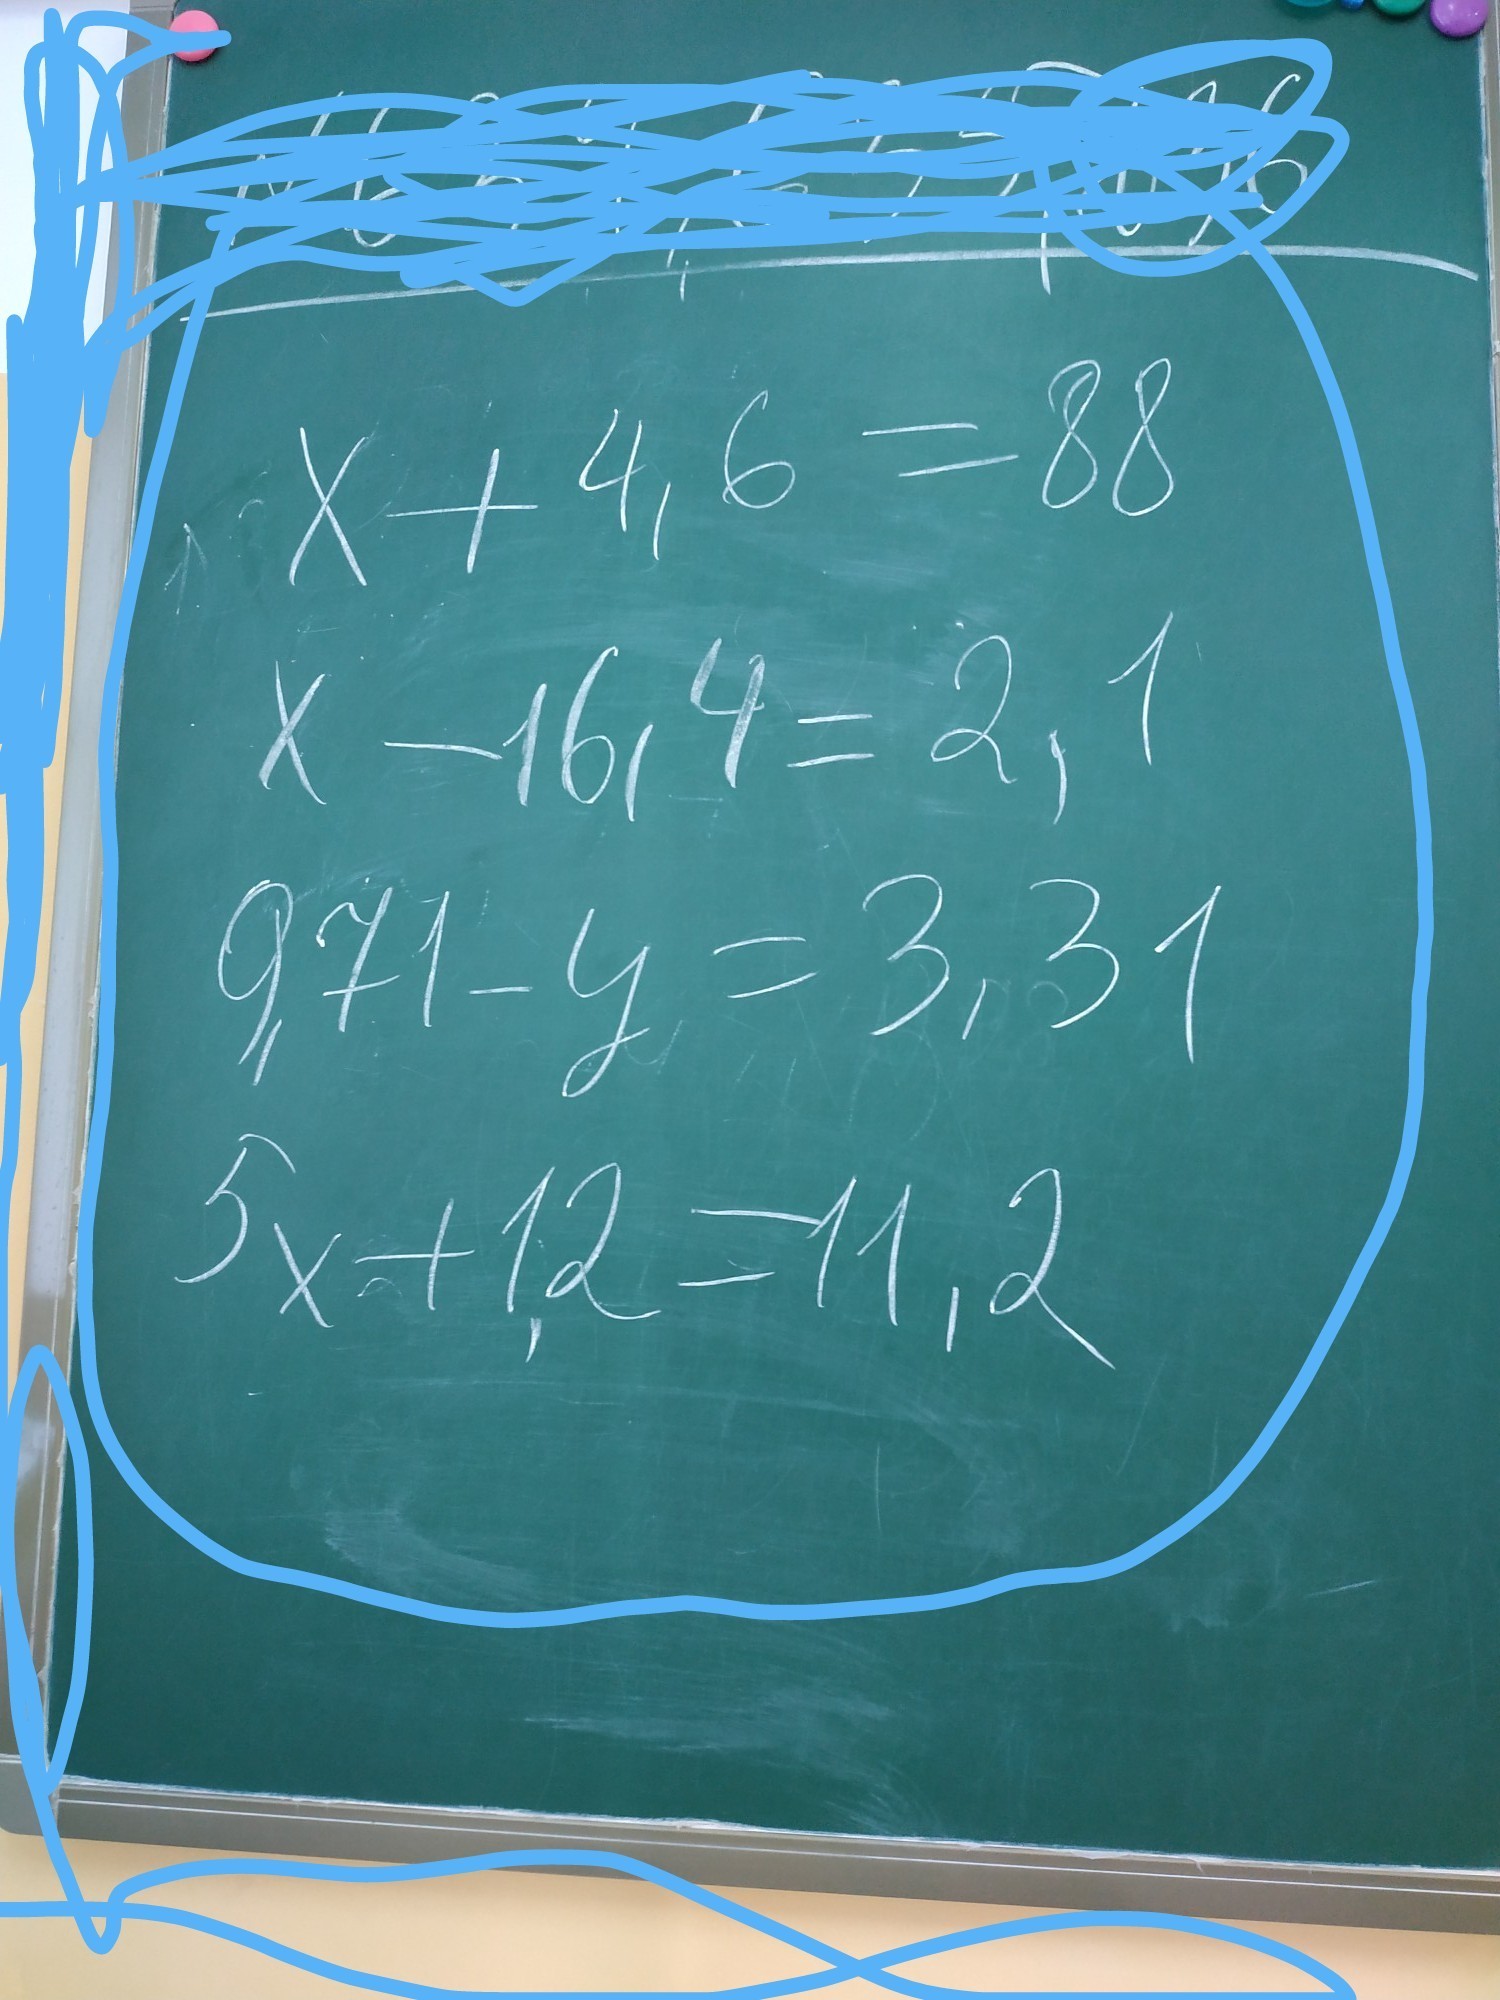 x + 4,6 = 88
x - 16,4 = 2,1
9,71 - y = 3,31
5x + 1,2 = 11,2